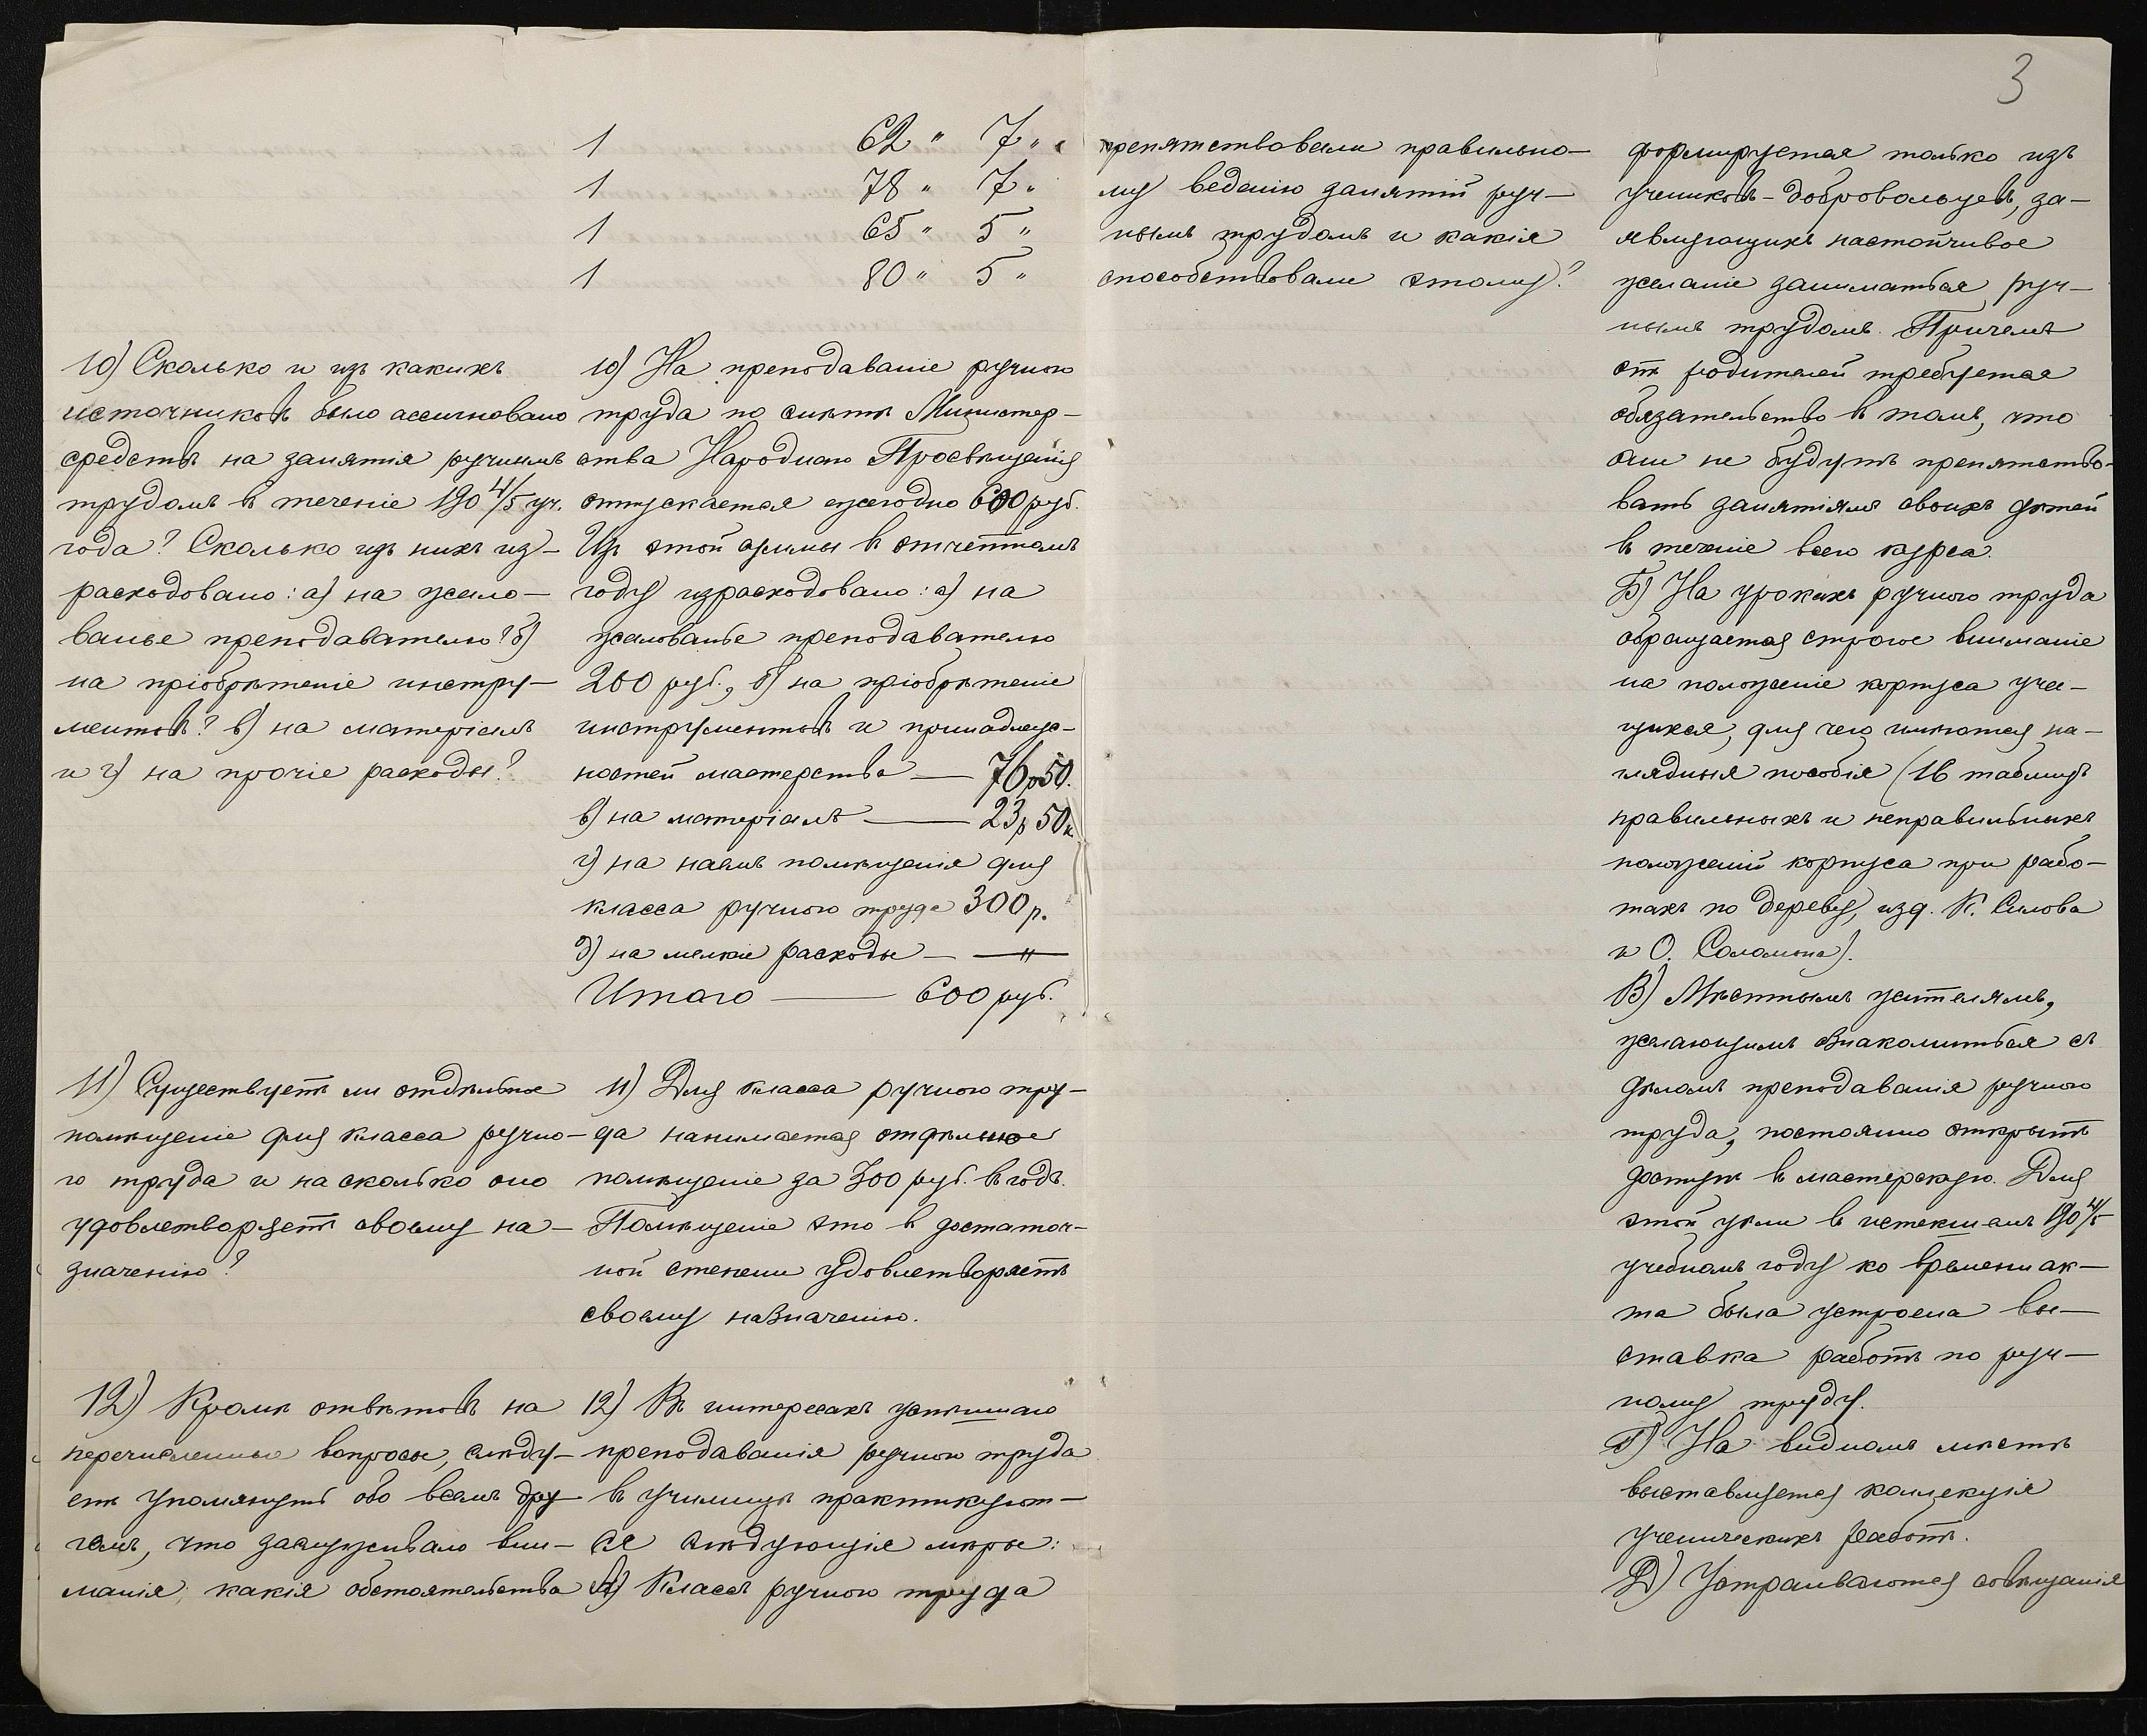 3
1 62 " 7 " "
1 78 " 7 "
1 65 " 5 "
1 80 " 5 "
10) Сколько и изъ какихъ
источниковъ было ассигновано
средствъ на занятія ручнымъ
трудомъ въ теченіе 190 4/5 уч.
года? Сколько изъ нихъ из-
расходовано: а) на жало-
ванье преподавателю? б)
на пріобрѣтеніе инстру-
ментовъ? в) на матеріалъ
и г) на прочіе расходы?
10) На преподаваніе ручного
труда по смѣтѣ Министер-
ства Народнаго Просвѣщенія
отпускается ежегодно 600 руб.
Изъ этой суммы въ отчетномъ
году израсходовано: а) на
жалованье преподавателю
200 руб., б) на пріобрѣтеніе
инструментовъ и принадлеж-
ностей мастерства — 76 р 50.
в) на матеріалъ — 23 р 50 к
г) на наемъ помѣщенія для
класса ручного труда 300 р.
д) на мелкіе расходы — — " —
Итого — 600 руб.
11) Существуетъ ли отдѣльное
помѣщеніе для класса ручно-
го труда и на сколько оно
удовлетворяетъ своему на-
значенію?
11) Для класса ручного тру-
да нанимается отдѣльное
помѣщеніе за 300 руб. въ годъ.
Помѣщеніе это въ достаточ-
ной степени удовлетворяетъ
своему назначенію.
12) Кромѣ отвѣтовъ на
перечисленные вопросы, слѣду-
етъ упомянуть обо всемъ дру-
гомъ, что заслуживало вни-
манія; какія обстоятельства
12) Въ интересахъ успѣшнаго
преподаванія ручного труда
въ училищѣ практикуют-
ся слѣдующія мѣры:
А) Классъ ручного труда
препятствовали правильно-
му веденію занятій руч-
нымъ трудомъ и какія
способствовали этому?
формируется только изъ
учениковъ-добровольцевъ, за-
являющихъ настойчивое
желаніе заниматься руч-
нымъ трудомъ. Причемъ
отъ родителей требуется
обязательство въ томъ, что
они не будутъ препятство-
вать занятіямъ своихъ дѣтей
въ теченіе всего курса.
Б) На урокахъ ручного труда
обращается строгое вниманіе
на положеніе корпуса уча-
щихся, для чего имѣются на-
глядныя пособія (16 таблицъ
правильныхъ и неправильныхъ
положеній корпуса при рабо-
тахъ по дереву, изд. К. Силова
и О. Саломона).
В) Мѣстнымъ жителямъ,
желающимъ ознакомиться съ
дѣломъ преподаванія ручного
труда, постоянно открытъ
доступъ въ мастерскую. Для
этой цѣли въ истекшемъ 190 4/5
учебномъ году ко времени ак-
та была устроена вы-
ставка работъ по руч-
ному труду.
Г) На видномъ мѣстѣ
выставляется коллекція
ученическихъ работъ.
Д) Устраиваются совѣщанія